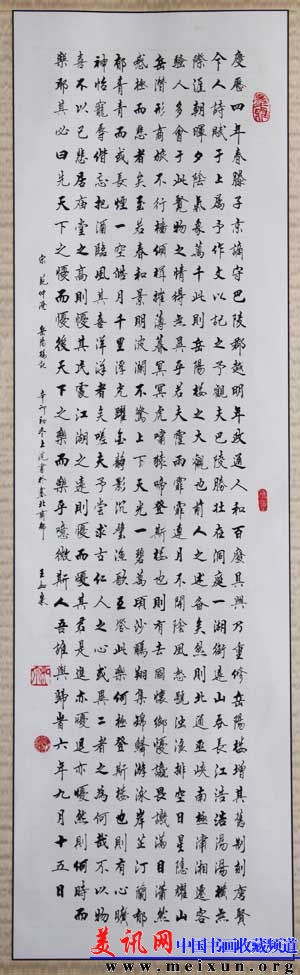 慶曆四年春滕子京謫守巴陵郡越明年政通人和百廢具興乃重修岳陽樓增其舊制刻唐賢
今人詩賦于上屬予作文以記之予觀夫巴陵勝狀在洞庭一湖銜遠山吞長江浩浩湯湯橫無
際涯朝暉夕陰氣象萬千此則岳陽樓之大觀也前人之述备矣然則北通巫峽南極瀟湘遷客
騷人多會于此覽物之情得無異乎若夫霪雨霏霏連月不開陰風怒號濁浪排空日星隱耀山
岳潛形商旅不行檣傾楫摧薄暮冥冥虎嘯猿啼登斯樓也則有去國懷鄉憂讒畏譏滿目蕭然
感極而悲者矣至若春和景明波瀾不驚上下天光一碧萬頃沙鷗翔集錦鱗游泳岸芷汀蘭郁
郁青青而或長煙一空皓月千里浮光躍金靜影沉璧漁歌互答此樂何極登斯樓也則有心曠
神怡寵辱偕忘把酒臨風其喜洋洋者矣嗟夫予嘗求古仁人之心或異二者之為何哉不以物
喜不以己悲居廟堂之高則憂其民處江湖之遠則憂其君是進亦憂退亦憂然則何時而
樂耶其必曰先天下之憂而憂後天下之樂而樂乎噫微斯人吾誰與歸時六年九月十五日
宋范仲淹岳陽樓記 辛卯初冬上浣書於塞北商都 王東
美讯网 中国书画收藏频道
www.meixun.org